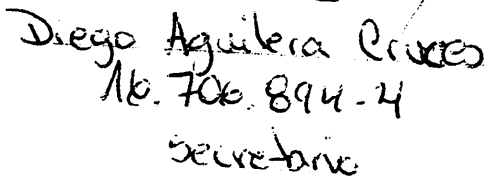 Diego Aguilera Cruces
16.706.894-4
secretario